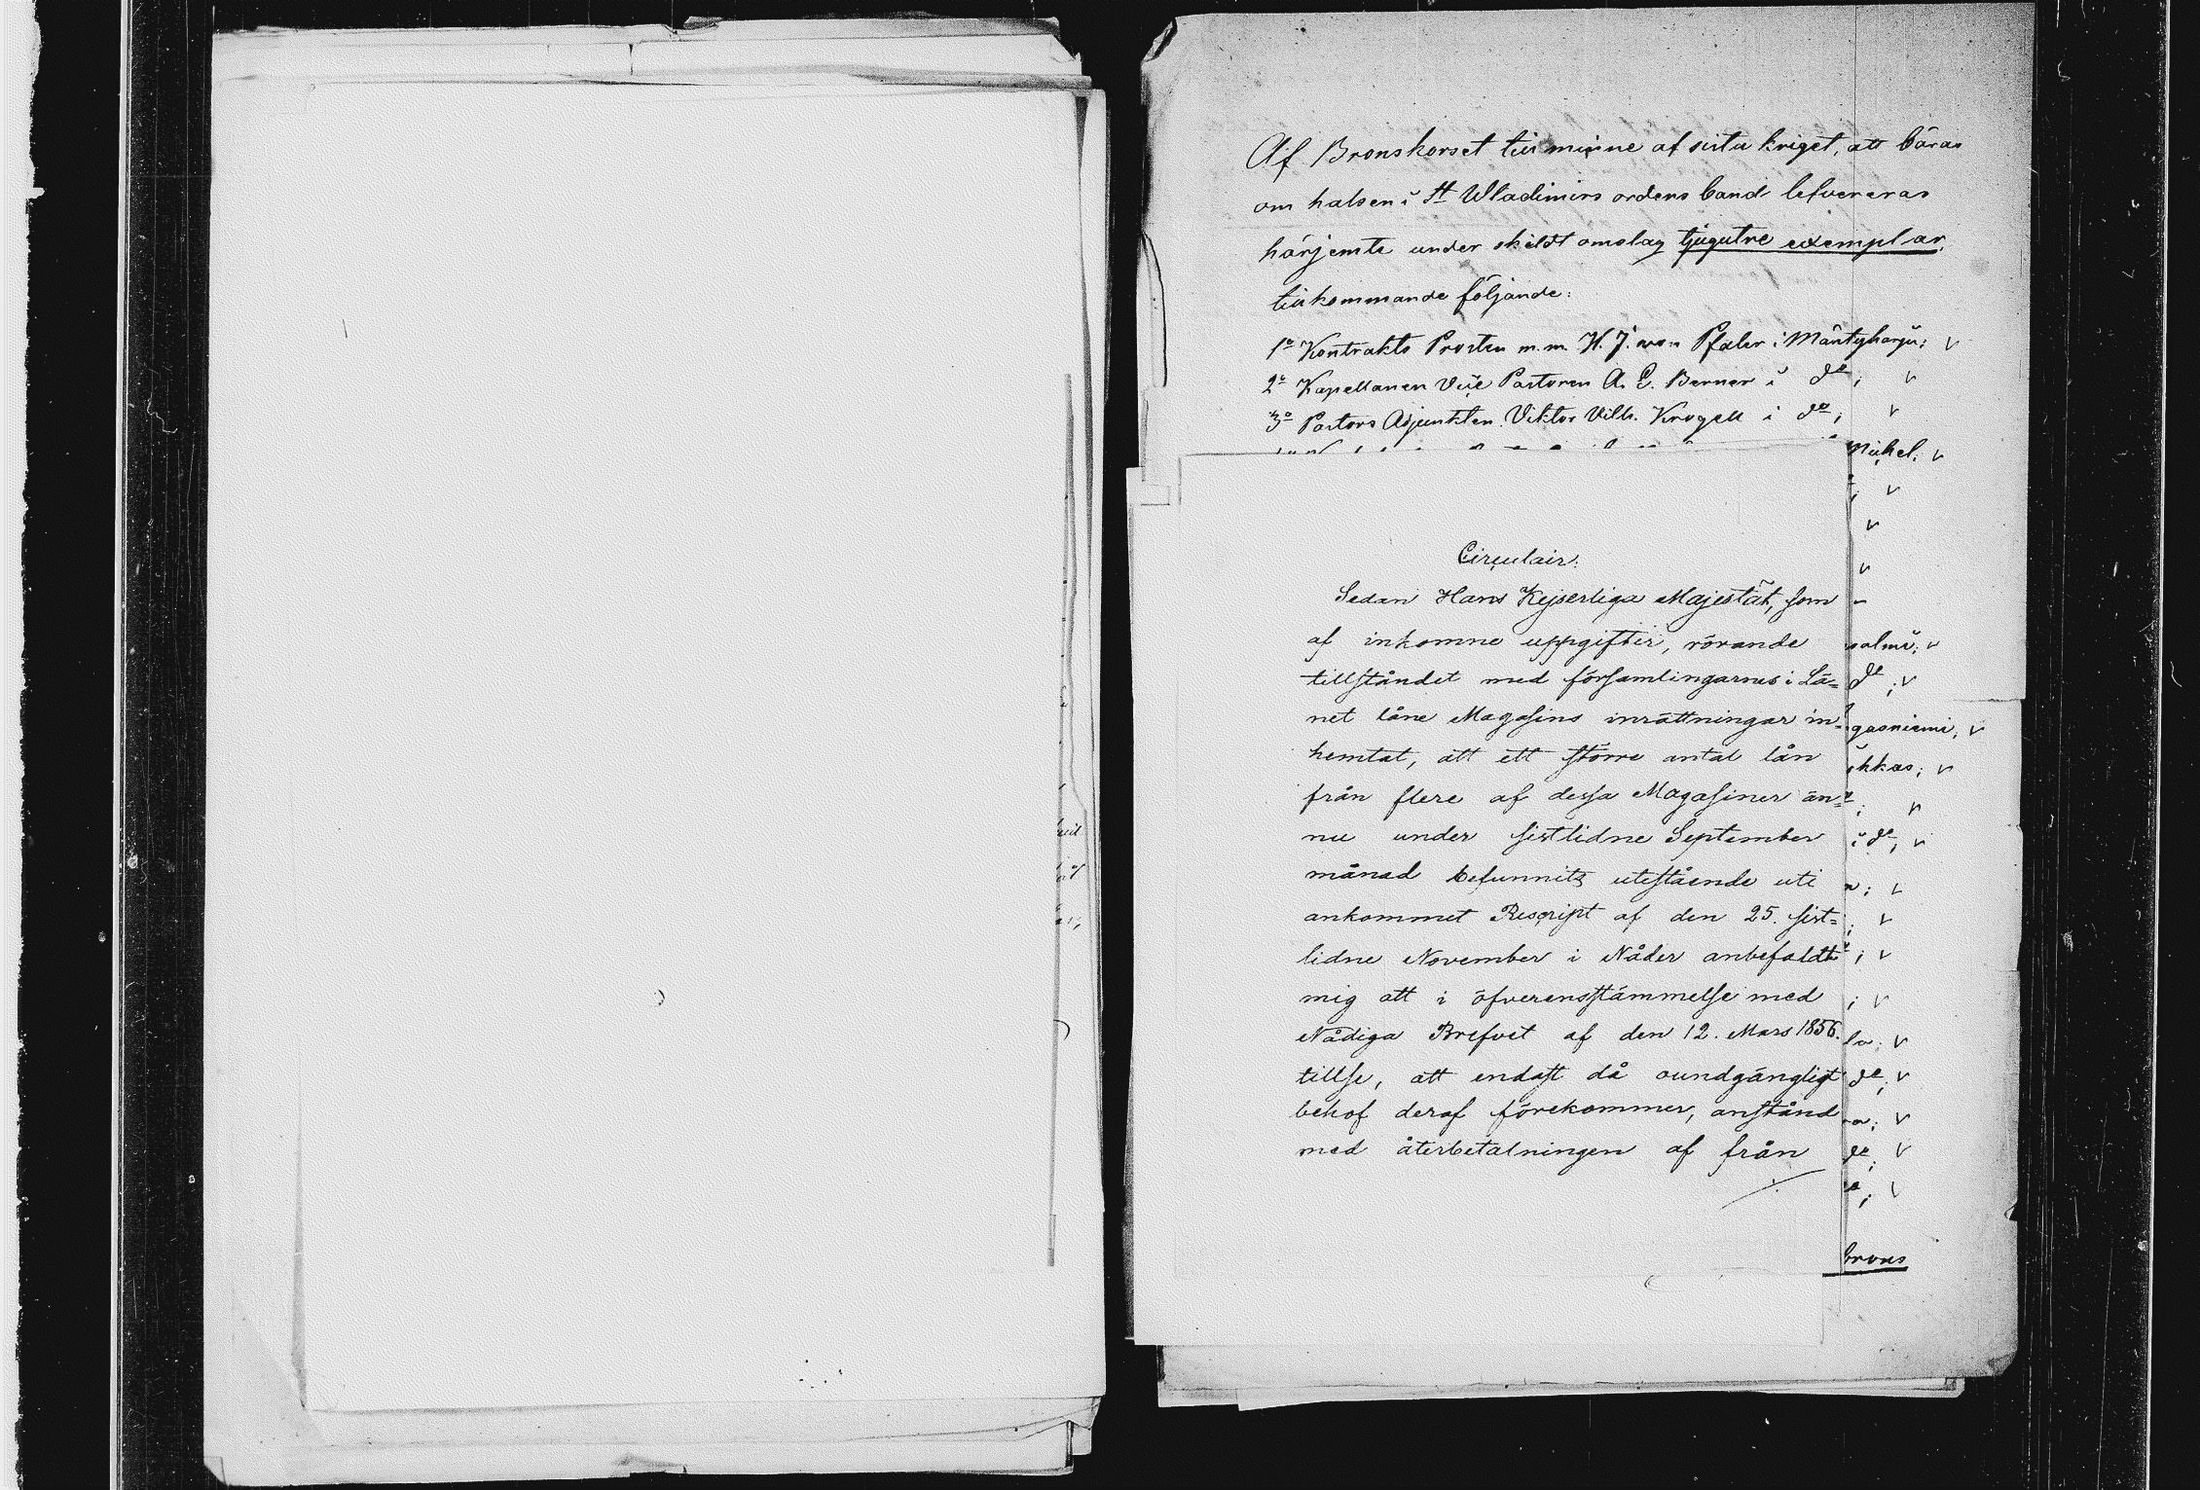 Af Bronskorset till minne af sista kriget, att bäras
om halsen i St Wladimirs ordens band lefvereras
härjemte under skildt omslag tjugutre exemplar,
tillkommande följande:
1o Kontrakts Prosten m.m. H. J. von Pfaler i Mäntyharju; v
2o Kapellanen Vice Pastoren A. E. Berner i do; v
3o Pastors Adjunkten Viktor Vilh. Krogell i do; v
Michel; v
; v
v
v
salmi; v
do; v
gasniemi; v
kkas; v
; v
i do; v
n; v
; v
; v
; v
la; v
do; v
ra; v
do; v
; v
brons
Circulair.
Sedan Hans Kejserliga Majestät, som
af inkomne uppgifter, rörande
tillståndet med församlingarnes i Lä=
net låne Magasins inrättningar in=
hemtat, att ett större antal lån
från flere af dessa Magasiner än=
nu under sistlidne September
månad befunnits utestående uti
ankommet Rescript af den 25. sist=
lidne November i Nåder anbefaldt
mig att i öfverensstämmelse med
Nådiga Brefvet af den 12. Mars 1856.
tillse, att endast då oundgängligt
behof deraf förekommer, anstånd
med återbetalningen af från